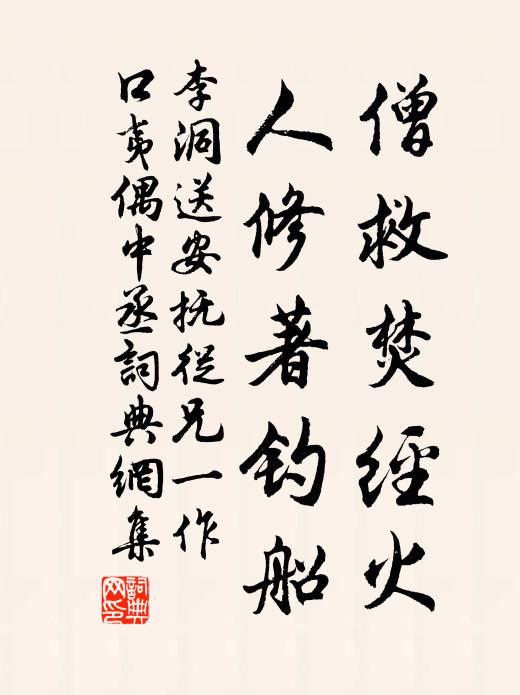 僧救焚經火
人修著钓船
李洞送安抚從兄一作
口夷偶中丞詞典網集
詞典網印